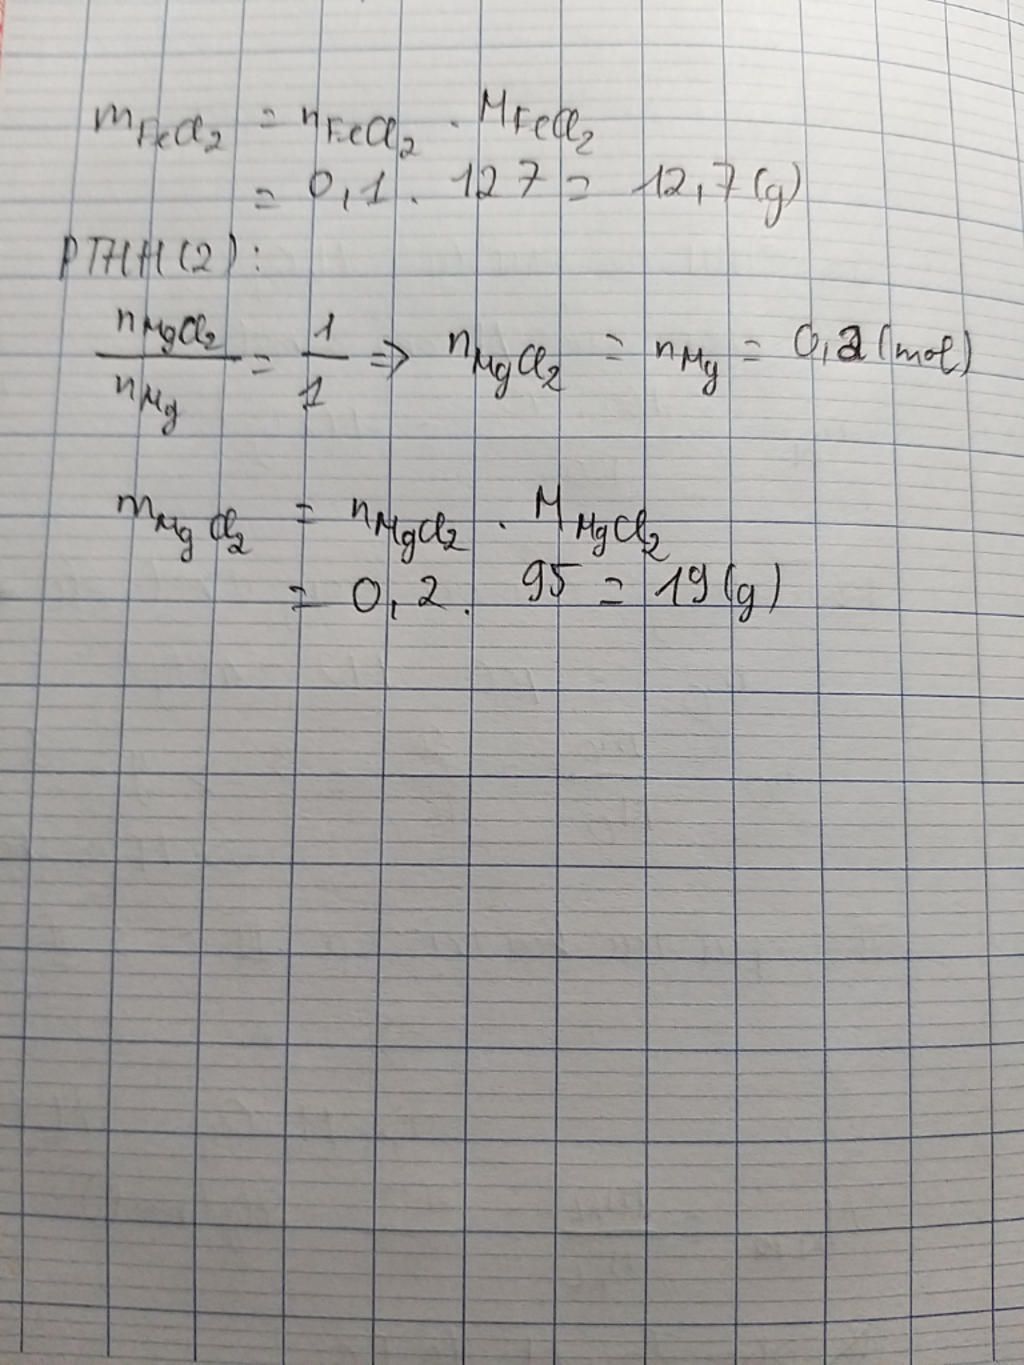 mFeCl2 = nFeCl2 . MFeCl2
= 0,1 . 127 = 12,7 (g)
PTHH (2) :
nMgCl2/nMg = 1/1 => nMgCl2 = nMg = 0,2 (mol)
mMgCl2 = nMgCl2 . MMgCl2
= 0,2 . 95 = 19 (g)